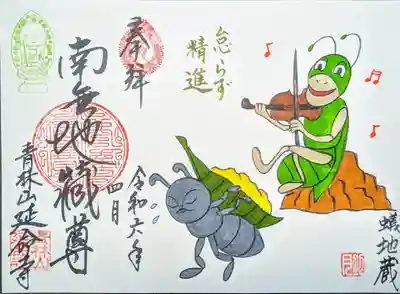 怠らず
精進
奉拝
南無地蔵尊
令和六年
四月
青林山延命寺
蟻地蔵